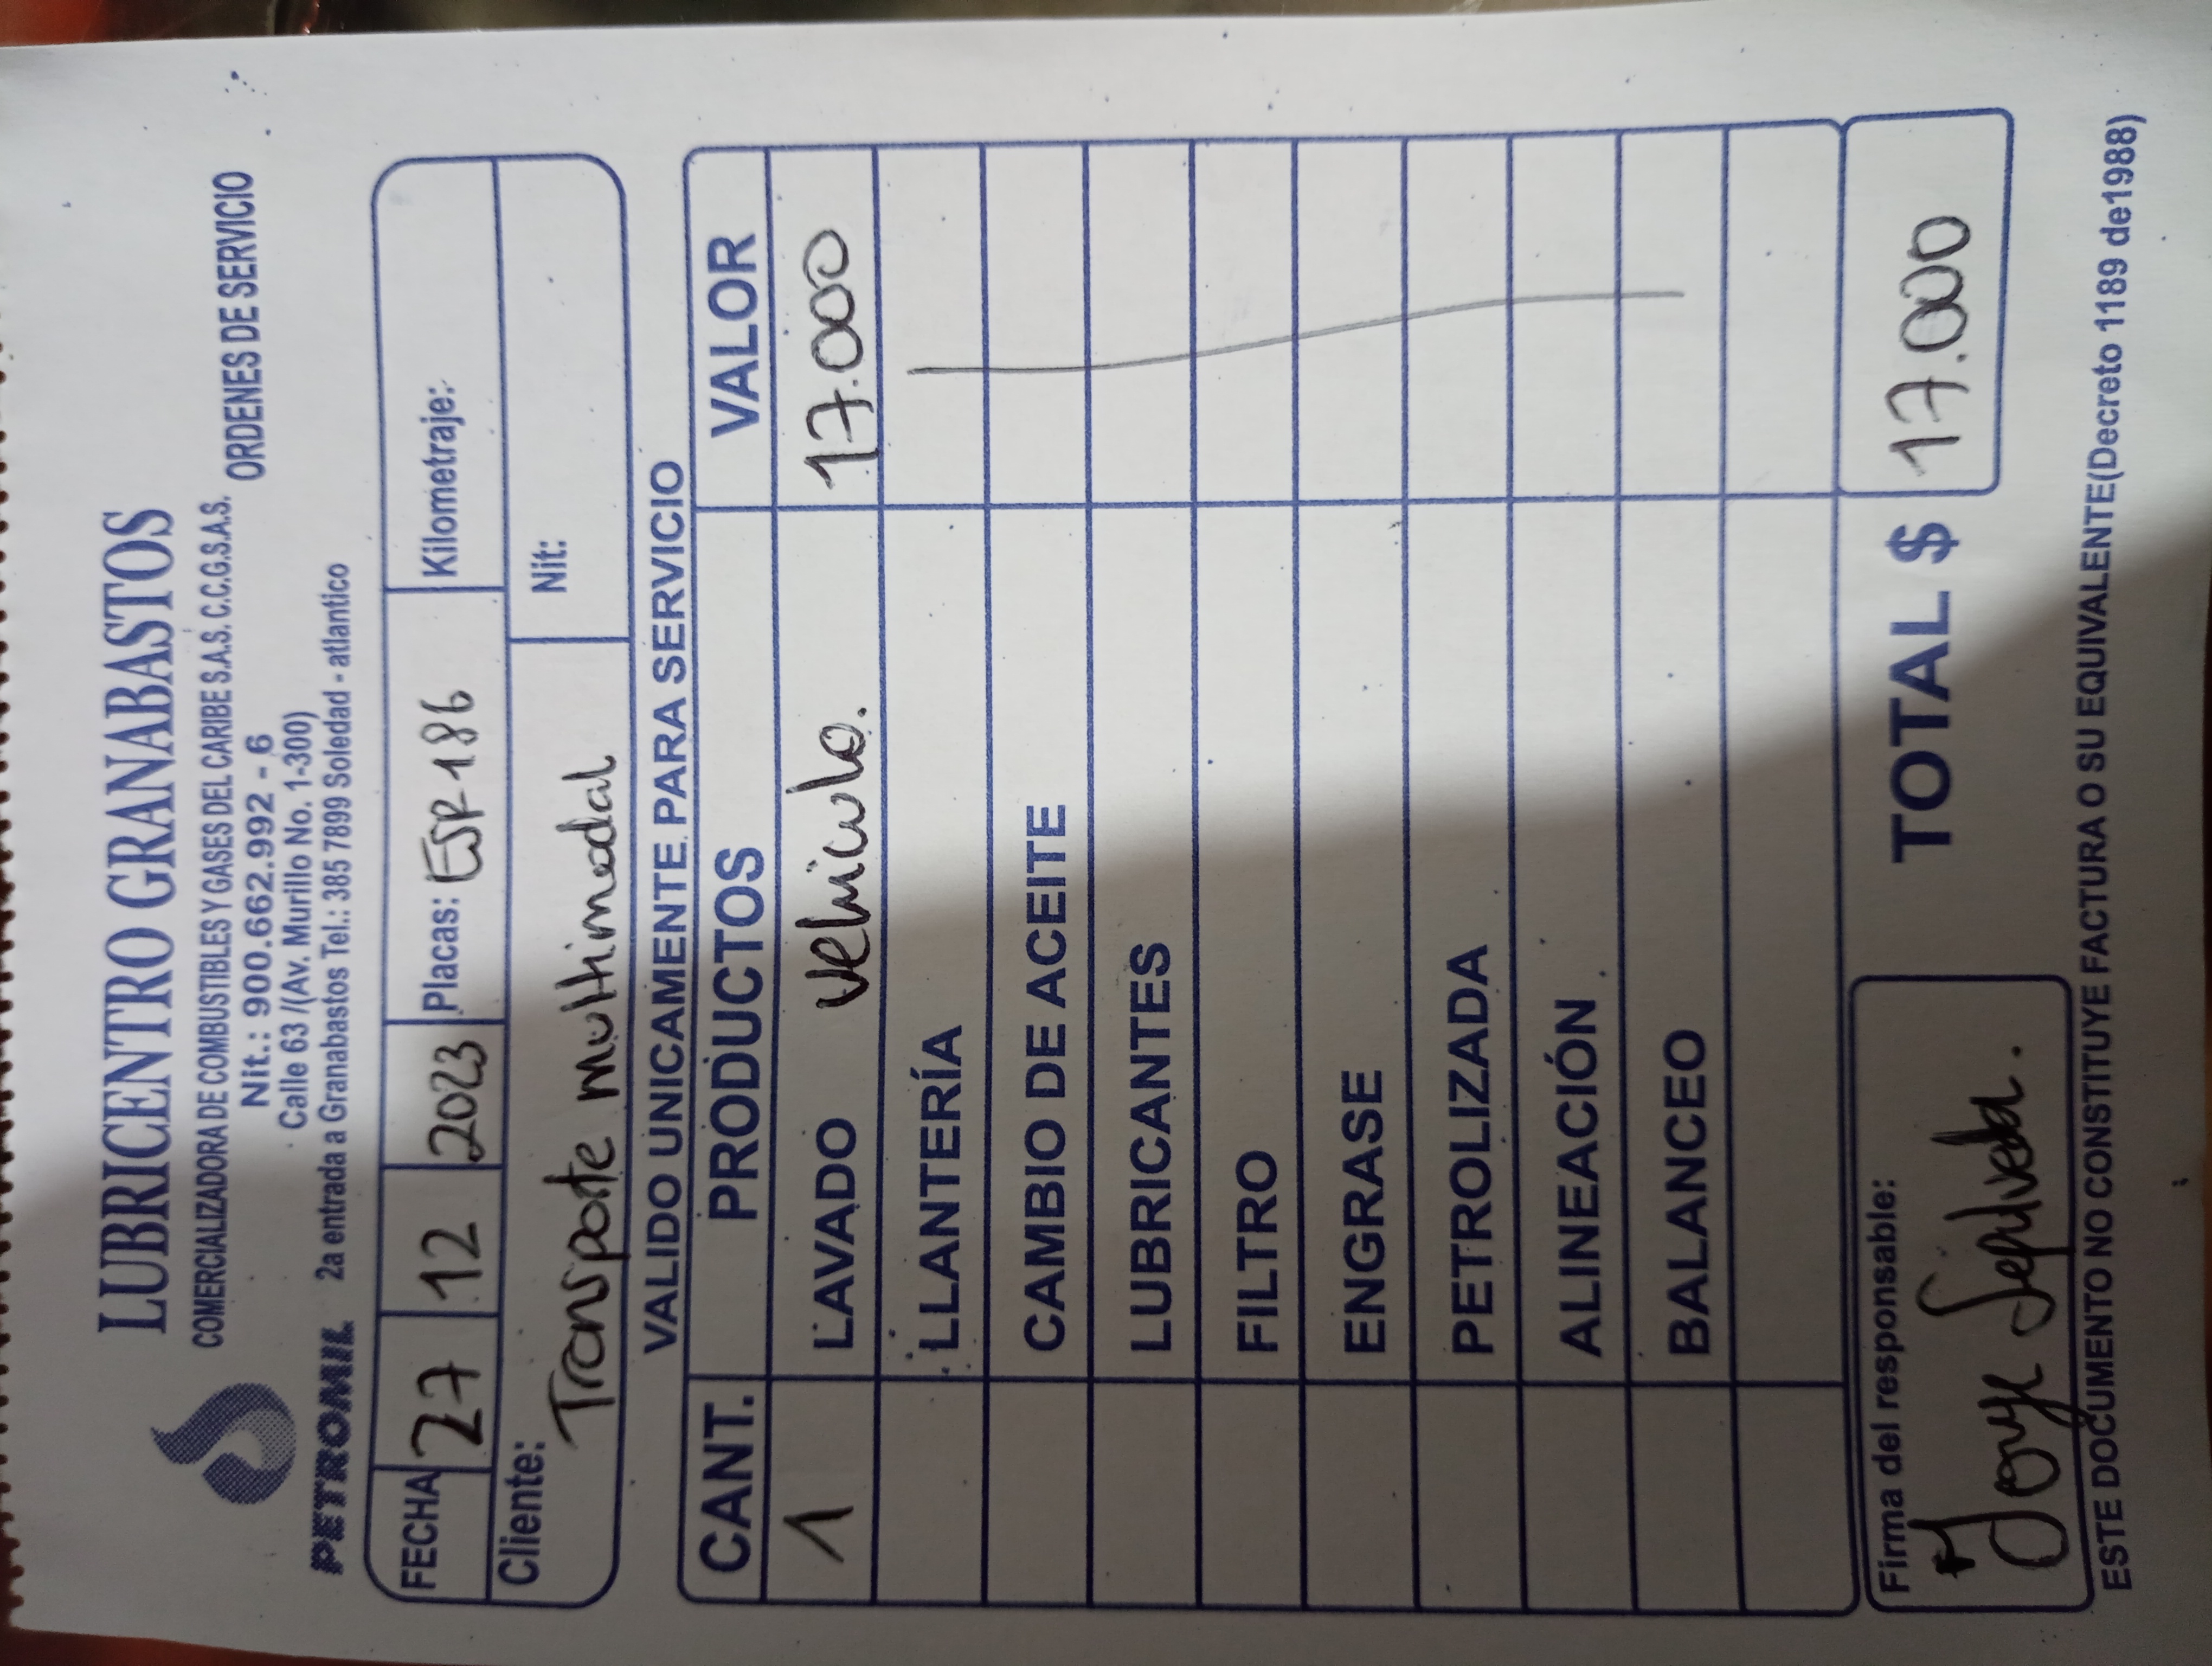 LUBRICENTRO GRANABASTOS
COMERCIALIZADORA DE COMBUSTIBLES Y GASES DEL CARIBE S.A.S. C.C.G.S.A.S.
Nit.: 900.662.992 - 6
ORDENES DE SERVICIO
Calle 63 /(Av. Murillo No. 1-300)
PETROMIL 2a entrada a Granabastos Tel.: 385 7899 Soledad - atlantico
FECHA 27 12 2023 Placas: ESR-186 Kilometraje:
Cliente: Transporte multimodal Nit:
VALIDO UNICAMENTE PARA SERVICIO
CANT. PRODUCTOS VALOR
1 LAVADO vehiculo. 17.000
LLANTERÍA
CAMBIO DE ACEITE
LUBRICANTES
FILTRO
ENGRASE
PETROLIZADA
ALINEACIÓN
BALANCEO
Firma del responsable:
Sepulveda.
TOTAL $ 17.000
ESTE DOCUMENTO NO CONSTITUYE FACTURA O SU EQUIVALENTE(Decreto 1189 de1988)